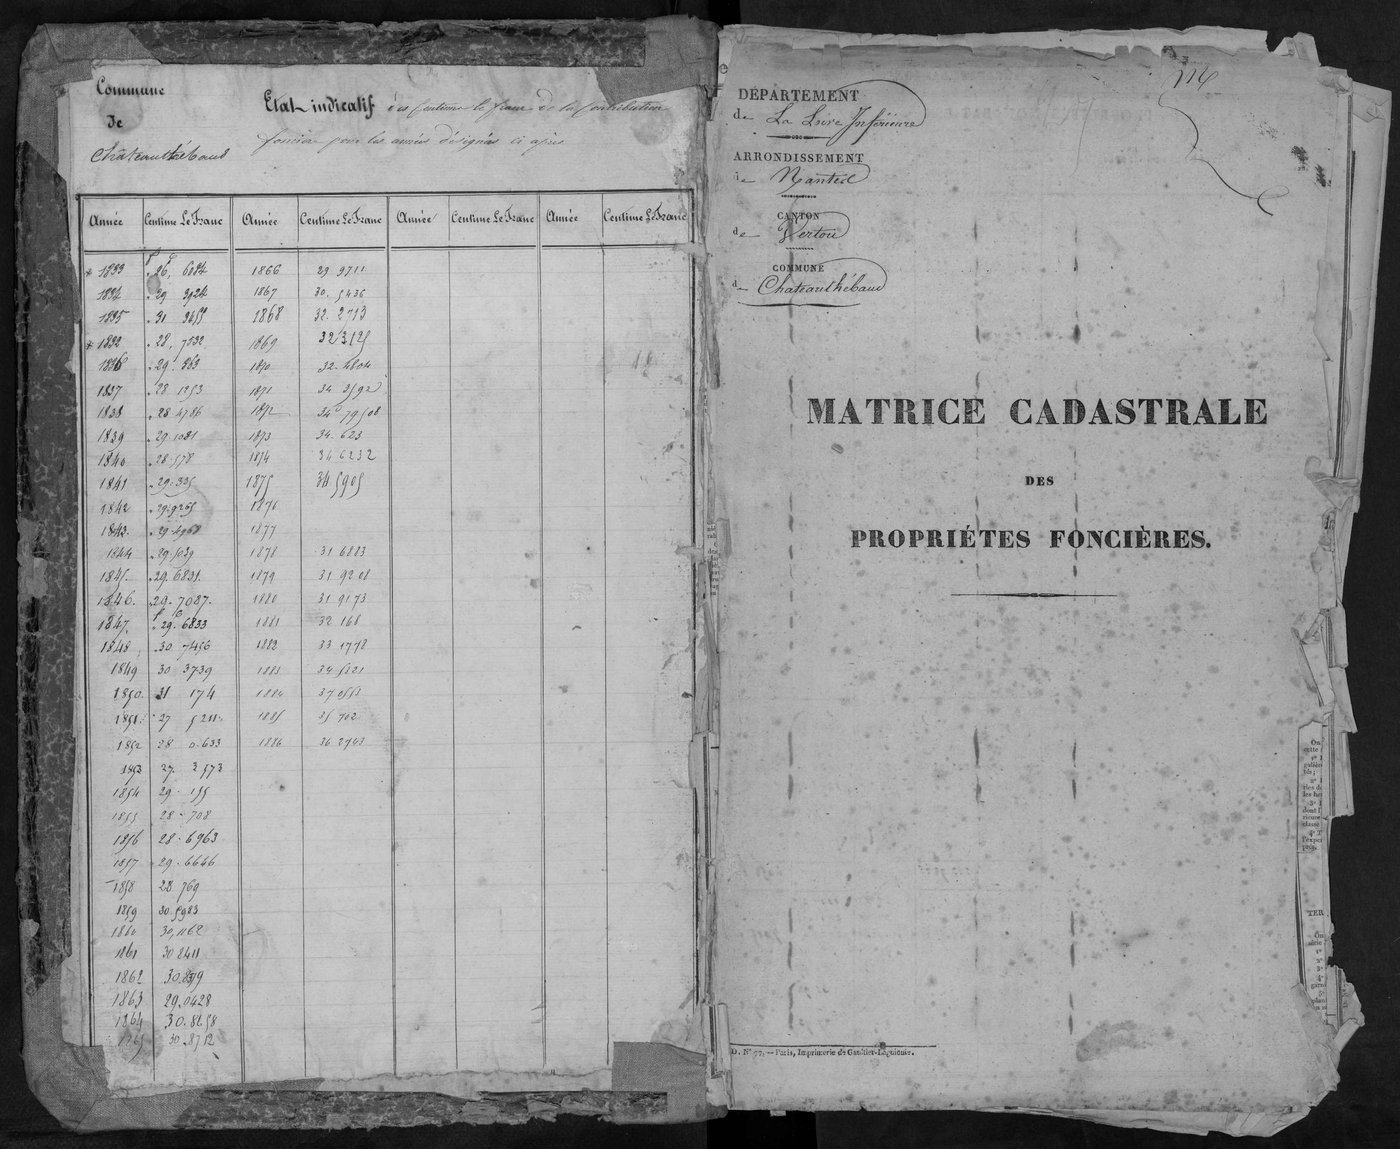 Commune
De
Châteauthébaud
Etat indicatif des Centimes le franc de la Contribution
foncière pour les années désignées ci après
Année Centime Le Franc Année Centime Le Franc Année Centime Le Franc Année Centime Le Franc
1866 29 9711
1834 29 3924 1867 30. 5436
1835 31 1868 32. 2713
28, 7532 1869 32 3125
29. 363 1870 32. 4804
1837 28 1253 1871 34 3592
1838 28 4786 1872 34 79508
1839 29. 1031 1873 34. 623
1840 28. 578 1874 34 6232
1841 29. 335 1875 34 5905
1842 29. 9265 1876
1843. 29. 4968 1877
1844 29. 5039 1878 31 6883
1845. 29. 6831. 1879 31 9208
1846. 29. 7087. 1880 31 9173
1847. 29. 6833 1881 32 168
1848 30 7456 1882 33 1778
1849 30 3739 1883 34 5321
1850. 31 174 1884
1851. 27 5211. 1885 35 702
1852 28 0.633 1886 36 2743
1853 27. 2573
1854 29. 155
1855 28. 708
1856 28. 6963
1857 29. 6646
1858 28 769
1859 30. 5983
1860 30, 1162
1861 30 8411
1862
1863 29.0428
1864 30.8258
1865 30.8752
DÉPARTEMENT
de La Loire Inférieure
ARRONDISSEMENT
de Nantes
CANTON
de Vertou
COMMUNE
de Châteauthébaud
MATRICE CADASTRALE
DES
PROPRIÉTES FONCIÈRES.
D. N° 77. — Paris, Imprimerie de Gaultier-Laguionie.